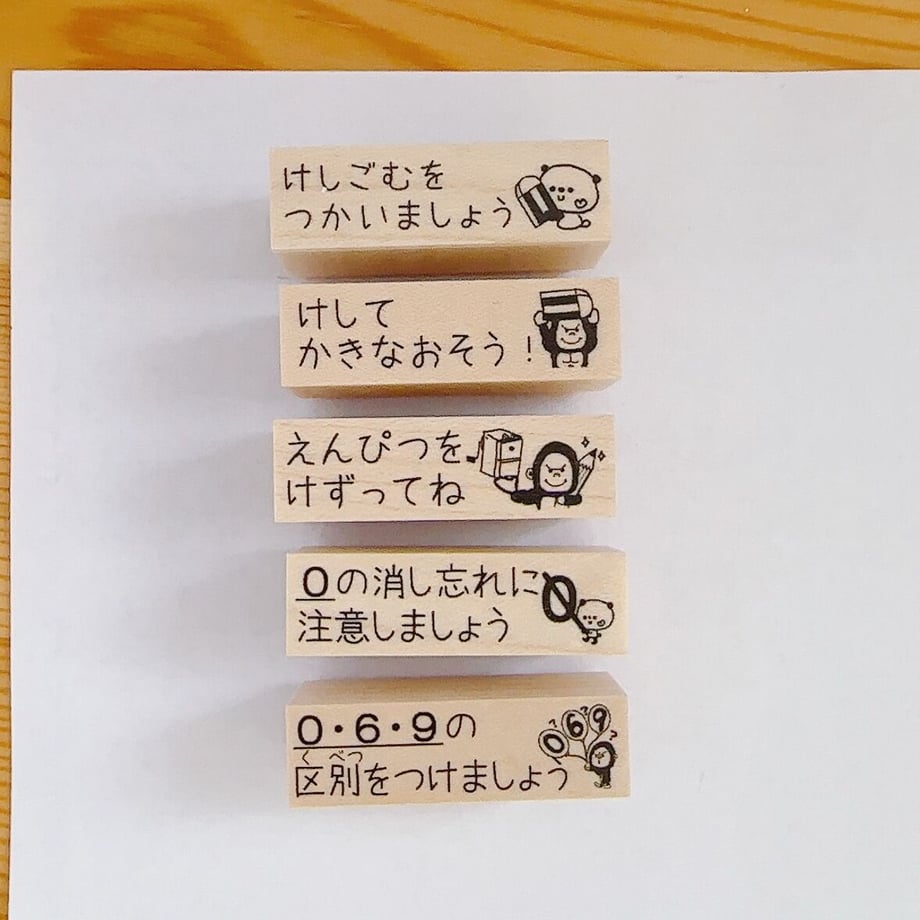 けしごむを
つかいましょう
けして
かきなおそう！
えんぴつを
けずってね
0の消し忘れに
注意しましょう
0・6・9の
くべつ
区別をつけましょう
0 6 9